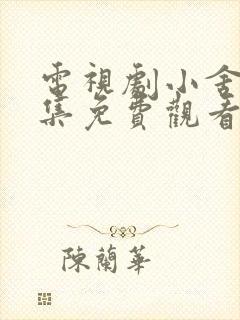 電視劇小舍
集免費觀看
陳蘭華